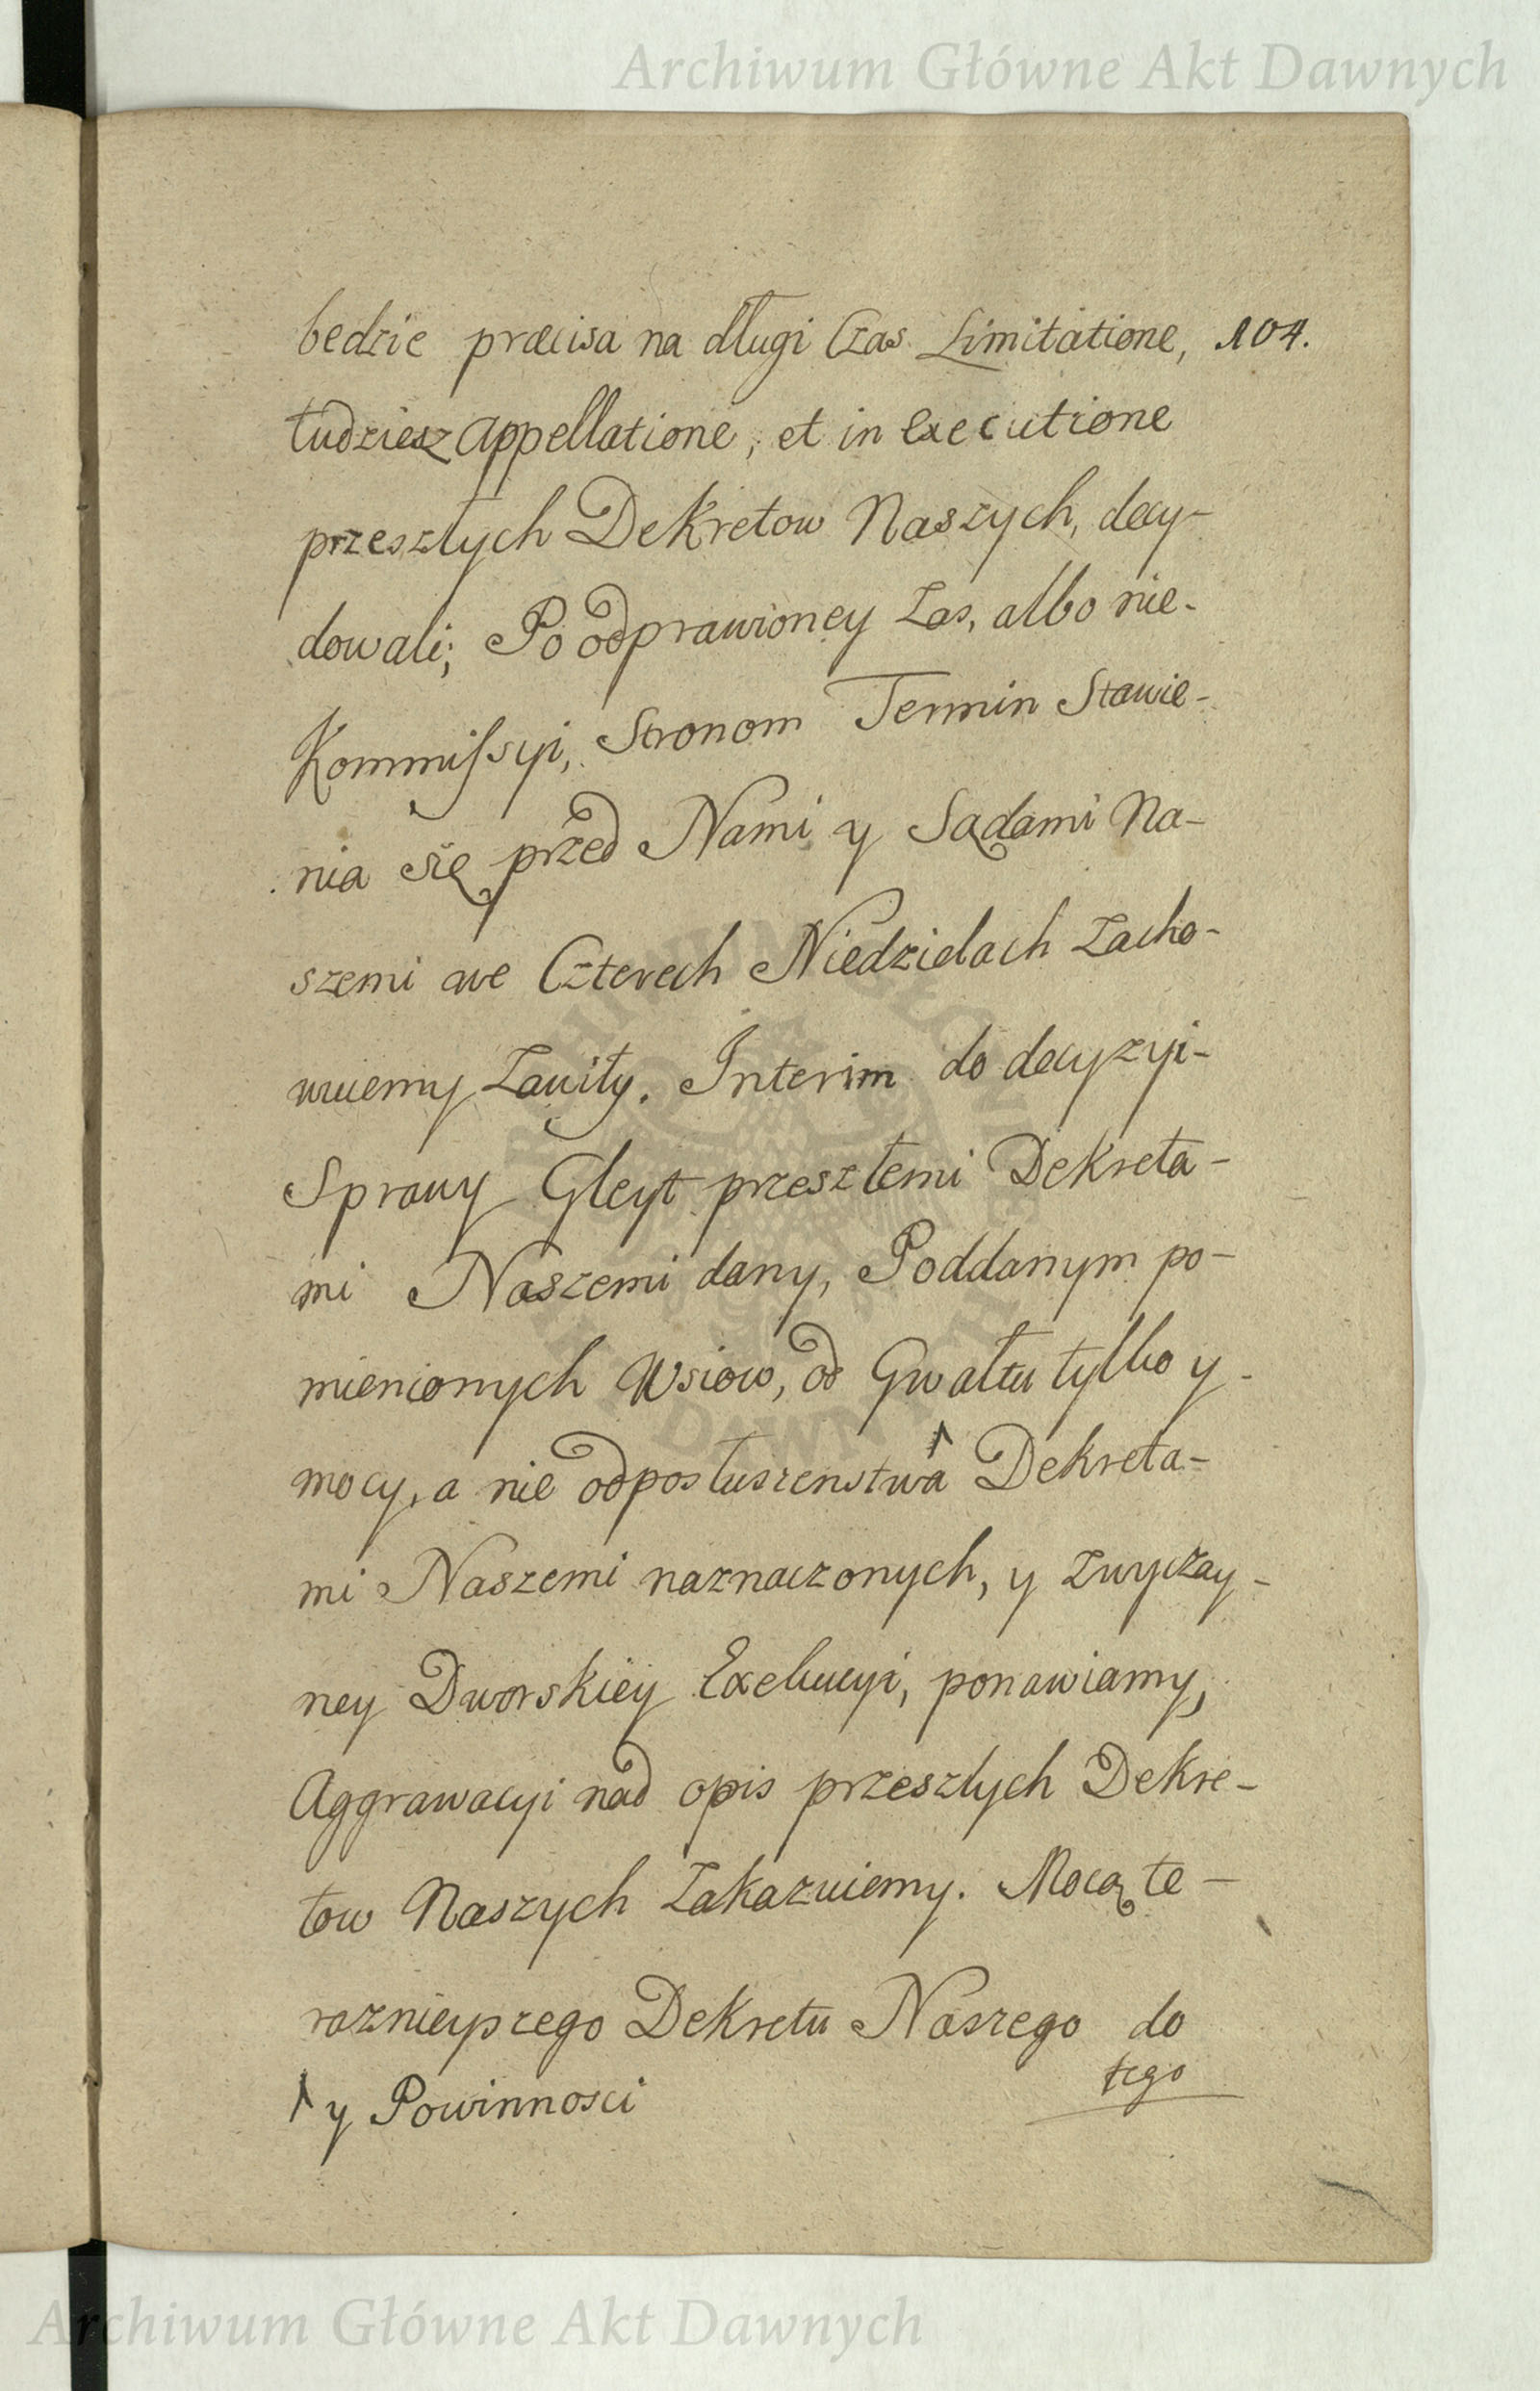 Archiwum Główne Akt Dawnych
bedzie præcisa na długi Czas Limitatione, 104.
tudziesz Appellatione, et in Executione
przeszłych Dekretow Naszych, decy-
dowali; Po odprawioney Zas, albo nie-
Kommissyi, Stronom Termin Stawie-
nia się przed Nami y Sądami Na-
szemi we Czterech Niedzielach Zacho-
wuiemy Zawity. Interim do decyzyi-
Sprawy Gleyt przeszłemi Dekreta-
mi Naszemi dany, Poddanym po-
mienionych Wsiow, od Gwałtu tylko y-
mocy, a nie od posłuszenstwa Dekreta-
mi Naszemi naznaczonych, y Zwyczay-
ney Dworskiey Exekucyi, ponawiamy,
Aggrawacyi nad opis przeszłych Dekre-
tow Naszych Zakazuiemy. Mocą te-
raznieyszego Dekretu Naszego do
tego
y Powinnosci
Archiwum Główne Akt Dawnych